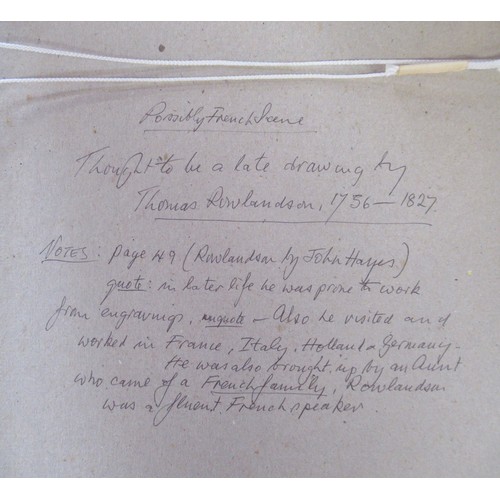 Possibly French Scene
Thought to be a late drawing by
Thomas Rowlandson, 1756 — 1827.
NOTES: page 49 (Rowlandson by John Hayes)
quote: in later life he was prone to work
from engravings, unquote — Also he visited and
worked in France, Italy, Holland & Germany —
He was also brought up by an Aunt
who came of a French family, Rowlandson
was a fluent French speaker.